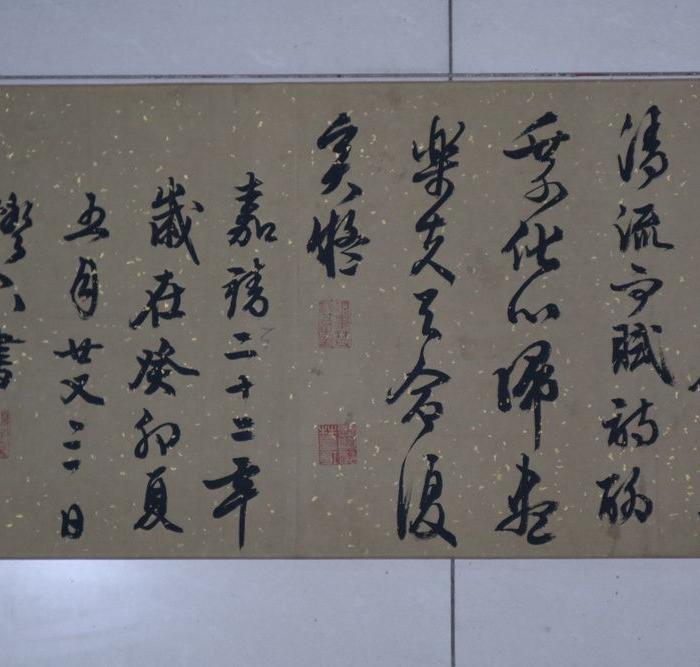 清流而賦詩聊
乘化以歸盡
樂夫天命復
奚疑
嘉靖二十二年
歲在癸卯夏
五月廿又三日
書